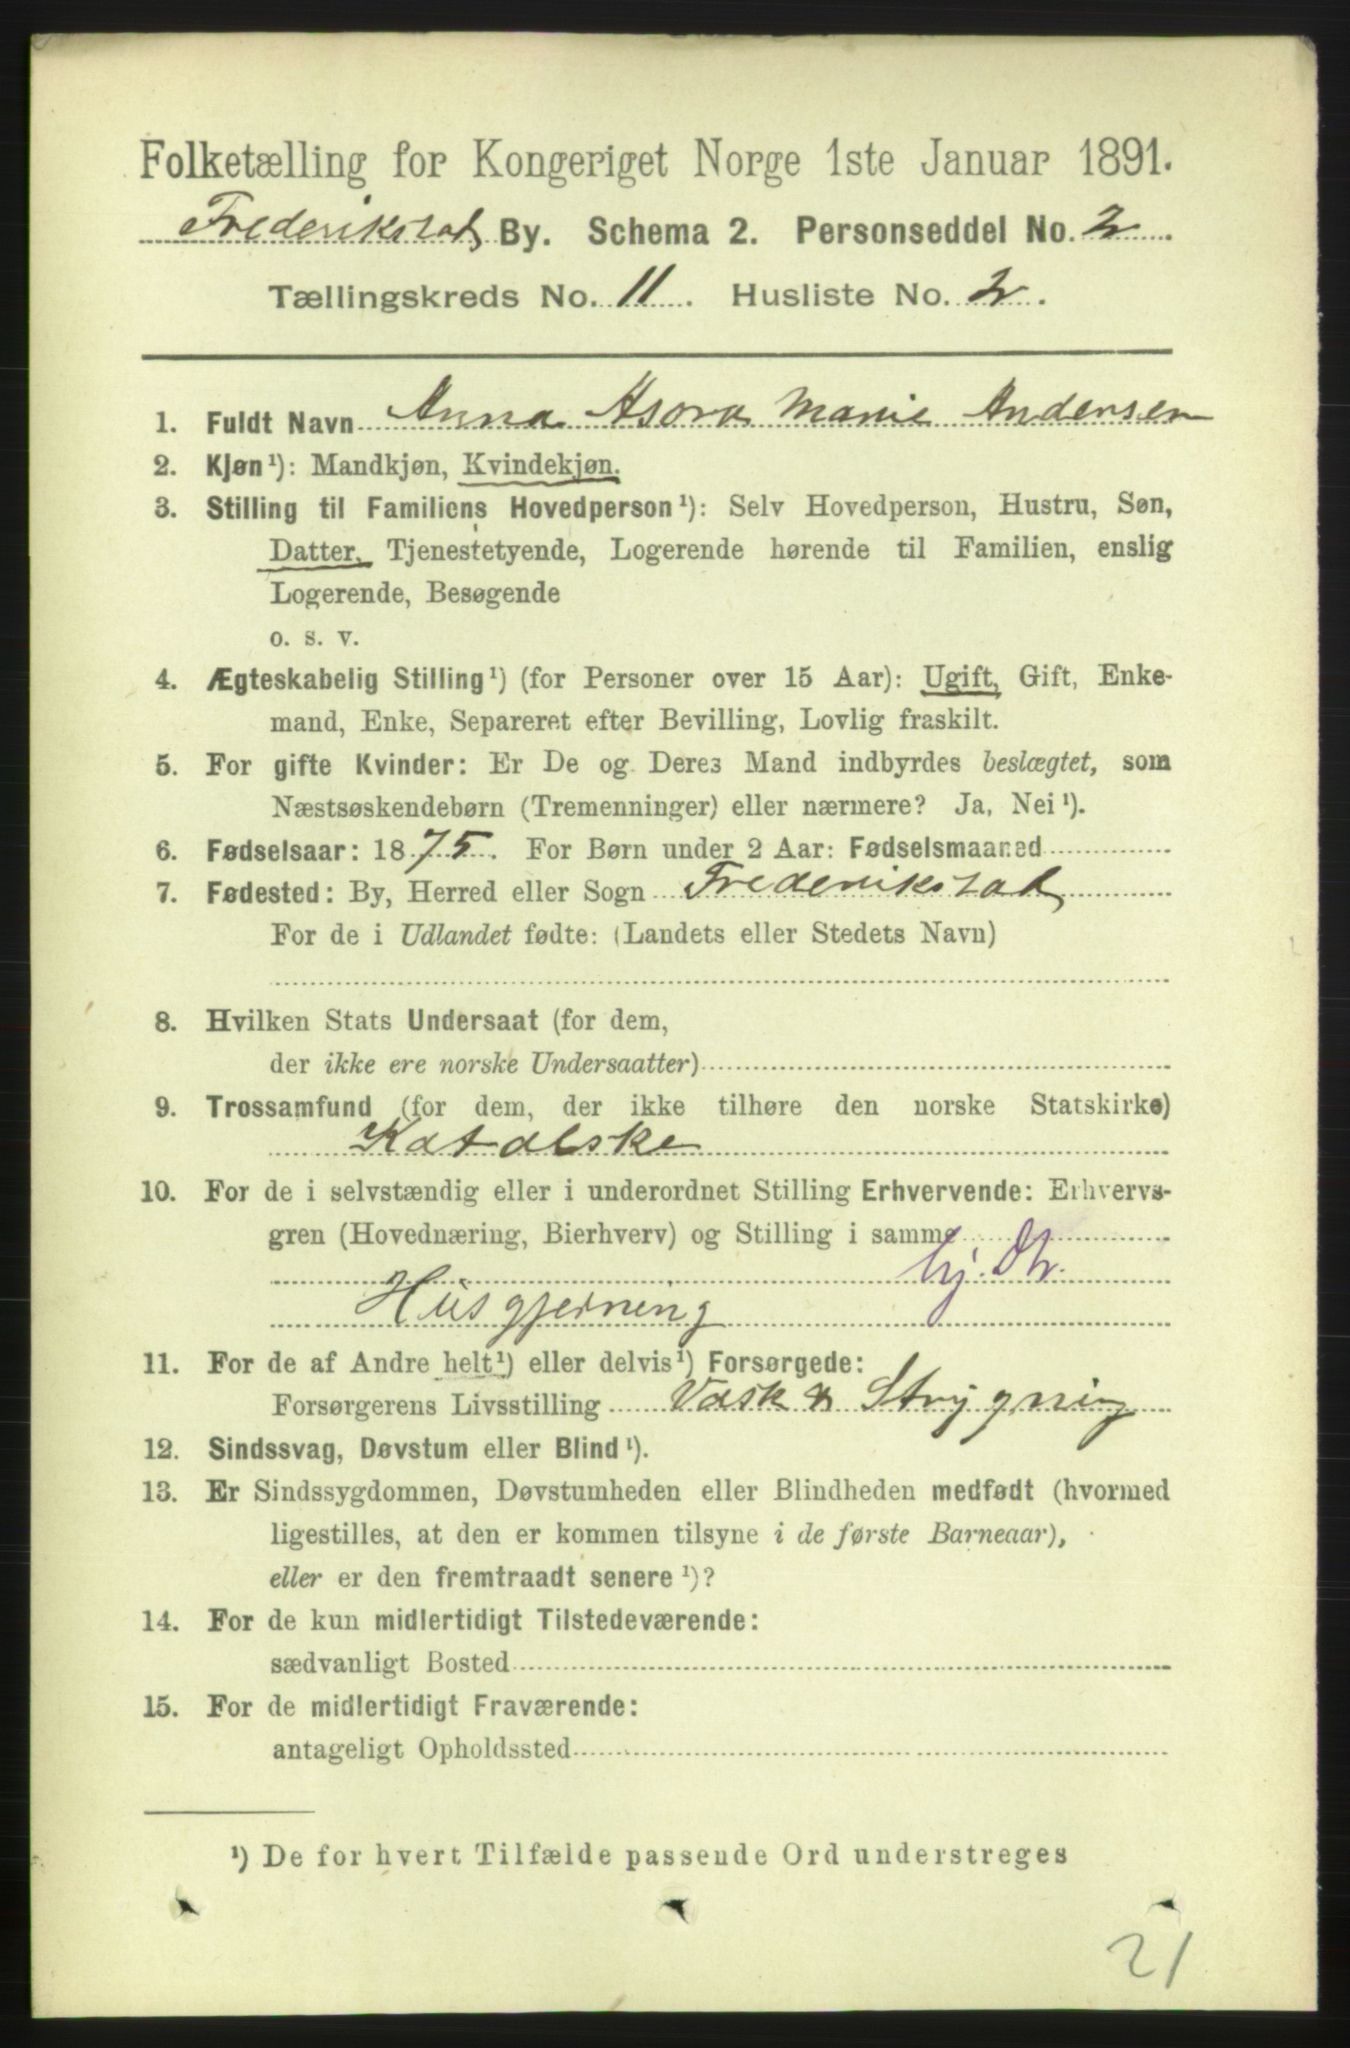 Folketælling for Kongeriget Norge 1ste Januar 1891.
Frederikstad By. Schema 2. Personseddel No. 2
Tællingskreds No. 11. Husliste No. 2.
1. Fuldt Navn Anna Asora Marie Andersen
2. Kjøn¹): Mandkjøn, Kvindekjøn.
3. Stilling til Familiens Hovedperson¹): Selv Hovedperson, Hustru, Søn,
Datter, Tjenestetyende, Logerende hørende til Familien, enslig
Logerende, Besøgende
o. s. v.
4. Ægteskabelig Stilling¹) (for Personer over 15 Aar): Ugift, Gift, Enke-
mand, Enke, Separeret efter Bevilling, Lovlig fraskilt.
5. For gifte Kvinder: Er De og Deres Mand indbyrdes beslægtet, som
Næstsøskendebørn (Tremenninger) eller nærmere? Ja, Nei¹).
6. Fødselsaar: 1875. For Børn under 2 Aar: Fødselsmaaned
7. Fødested: By, Herred eller Sogn Frederikstad
For de i Udlandet fødte: (Landets eller Stedets Navn)
8. Hvilken Stats Undersaat (for dem,
der ikke ere norske Undersaatter)
9. Trossamfund (for dem, der ikke tilhøre den norske Statskirke)
Katolske
10. For de i selvstændig eller i underordnet Stilling Erhvervende: Erhvervs-
gren (Hovednæring, Bierhverv) og Stilling i samme
hj. Dtr.
Husgjerning
11. For de af Andre helt¹) eller delvis¹) Forsørgede:
Forsørgerens Livsstilling Vask & Strygning
12. Sindssvag, Døvstum eller Blind¹).
13. Er Sindssygdommen, Døvstumheden eller Blindheden medfødt (hvormed
ligestilles, at den er kommen tilsyne i de første Barneaar),
eller er den fremtraadt senere¹)?
14. For de kun midlertidigt Tilstedeværende:
sædvanligt Bosted
15. For de midlertidigt Fraværende:
antageligt Opholdssted
¹) De for hvert Tilfælde passende Ord understreges
21